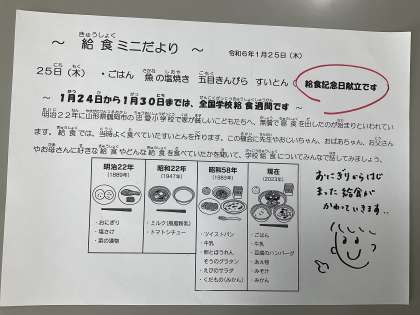 ～ 給食ミニだより ～
令和6年1月25日（木）
25日（木） ・ごはん 魚の塩焼き 五目きんぴら すいとん
給食記念日献立です
～ 1月24日から1月30日までは、全国学校給食週間です ～
明治22年に山形県鶴岡市の忠愛小学校で家が貧しいこどもたちへ、無償で給食を出したのが始まりといわれてい
ます。給食では、当時よく食べていたすいとんを作ります。この機会に先生やおじいちゃん、おばあちゃん、お父さん
やお母さんに好きな給食やどんな給食を食べていたかを聞いて、学校給食についてみんなで話してみましょう。
明治22年
（1889年）
・おにぎり
・塩さけ
・菜の漬物
昭和22年
（1947年）
・ミルク（脱脂粉乳）
・トマトシチュー
昭和58年
（1983年）
・ツイストパン
・牛乳
・卵とほうれん
そうのグラタン
・えびのサラダ
・くだもの（みかん）
現在
（2023年）
・ごはん
・牛乳
・豆腐のハンバーグ
・あえ物
・みそ汁
・みかん
おにぎりからはじ
まった給食が
かわっていきます。